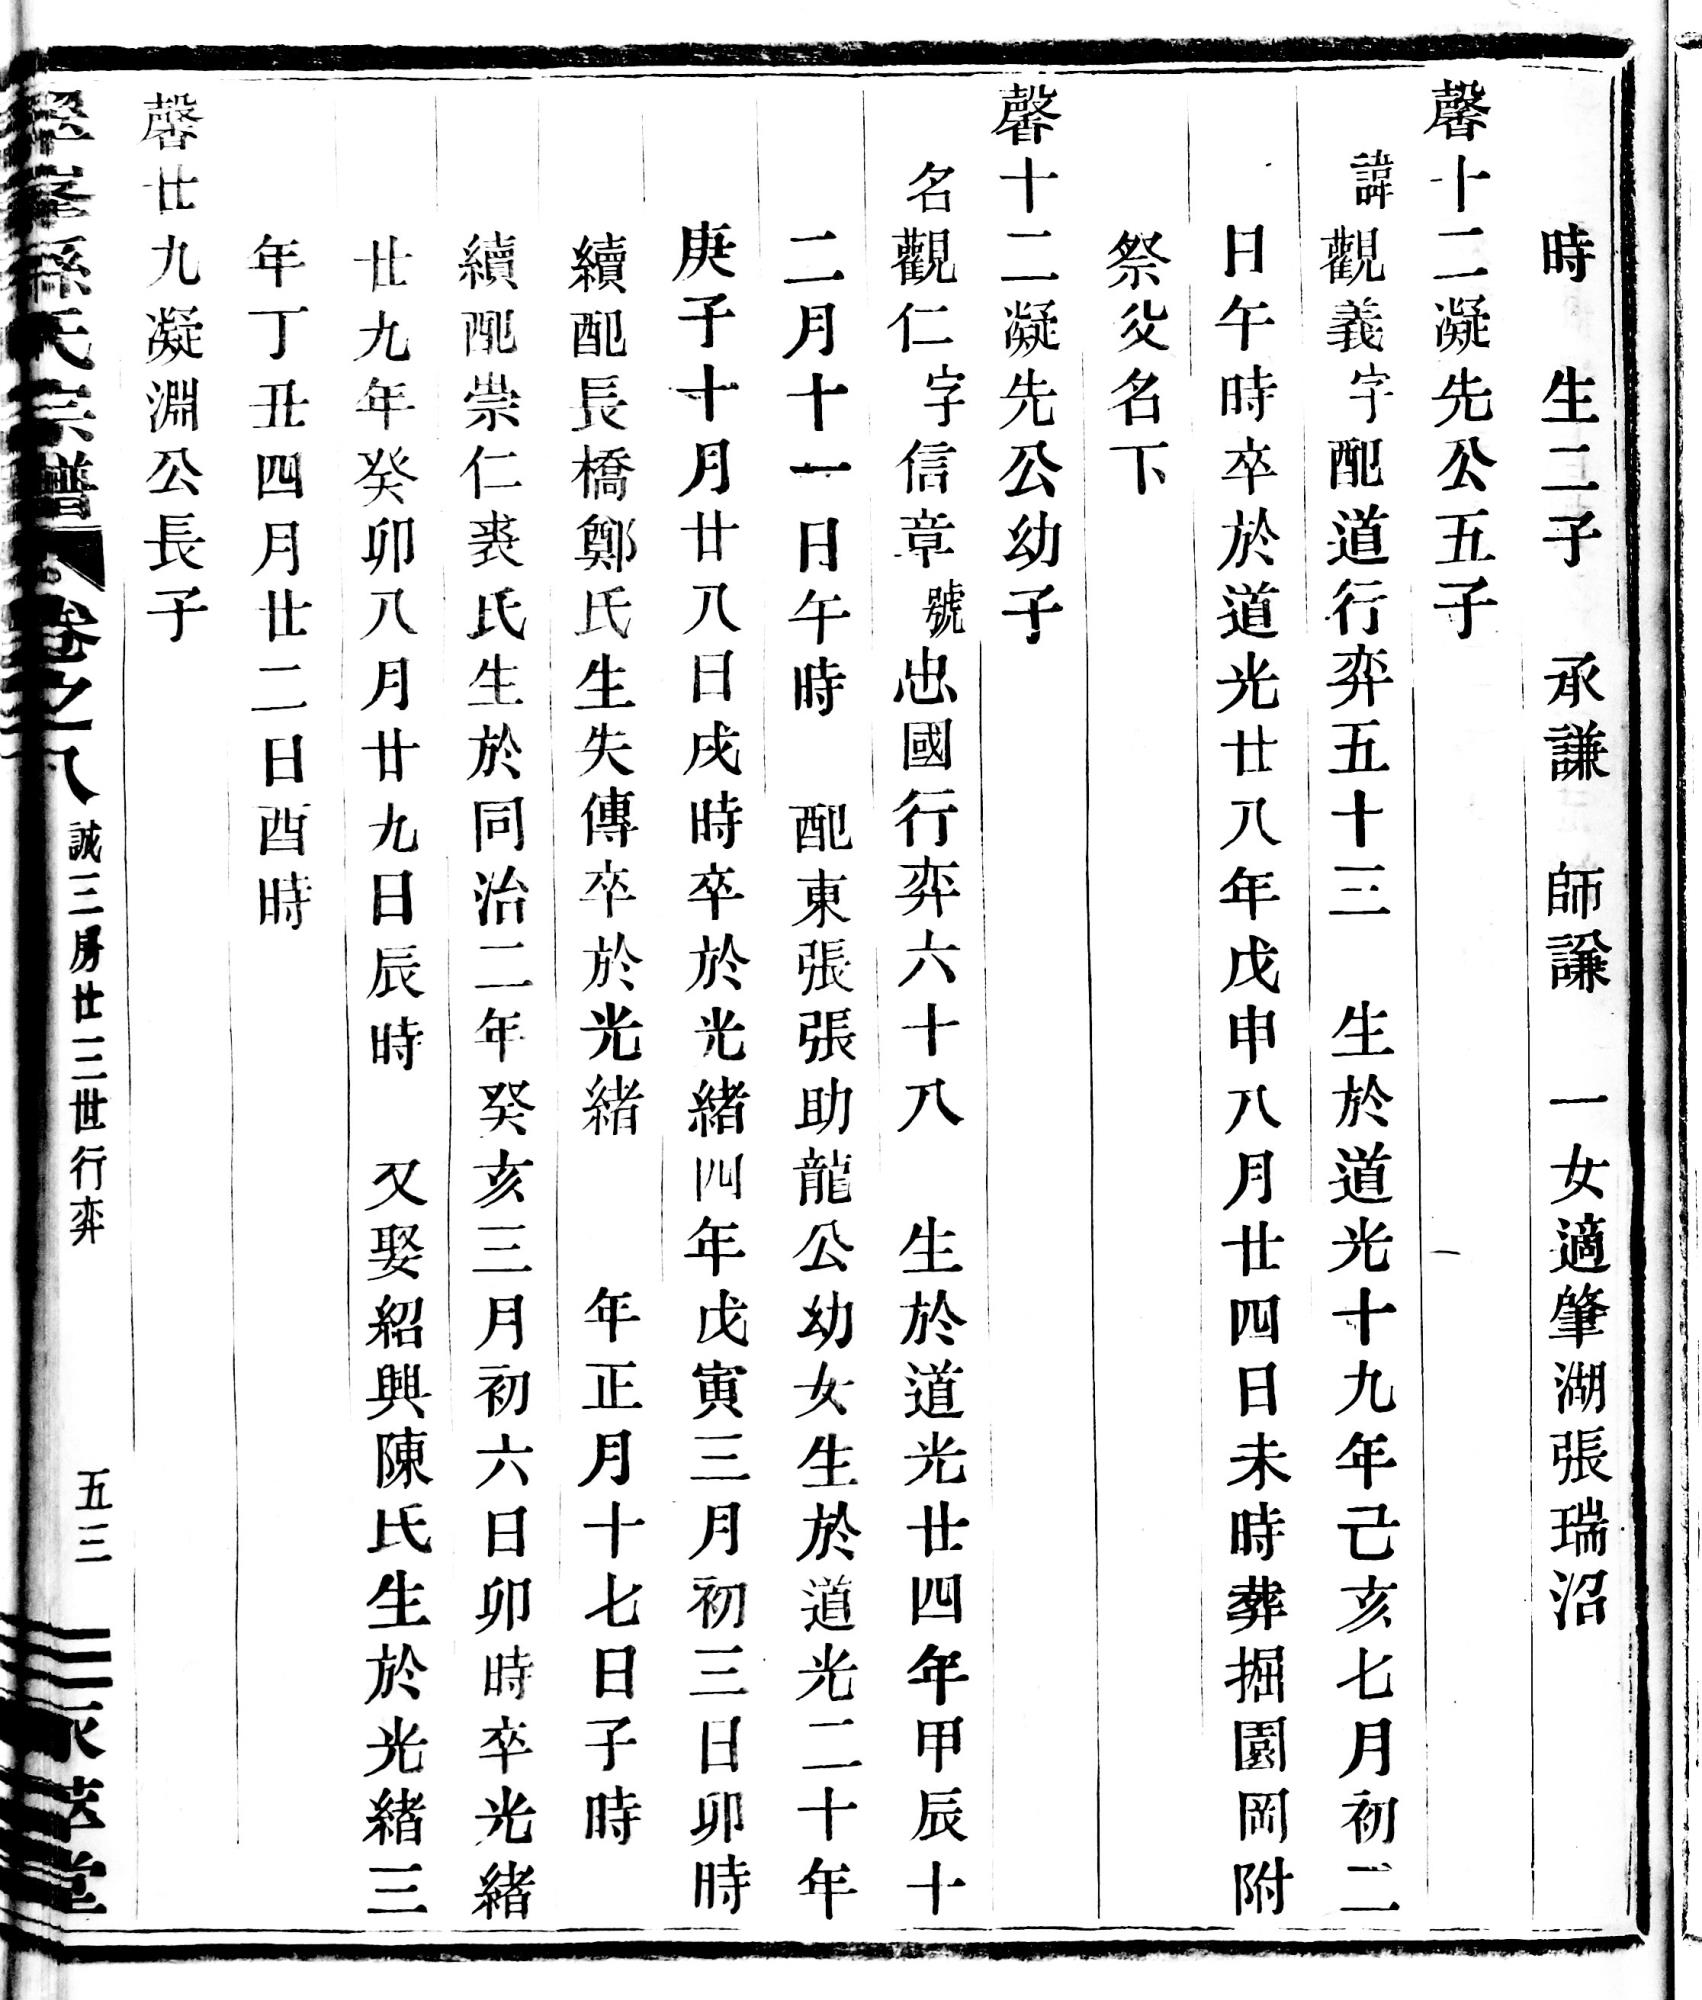 時　生二子　承謙　師謙　一女適肇湖張瑞沼
馨十二凝先公五子
諱觀義字配道行弈五十三　生於道光十九年己亥七月初二
日午時卒於道光廿八年戊申八月廿四日未時葬掘園岡附
祭父名下
馨十二凝先公幼子
名觀仁字信章號忠國行弈六十八　生於道光廿四年甲辰十
二月十一日午時　配東張張助龍公幼女生於道光二十年
庚子十月廿八日戌時卒於光緒四年戊寅三月初三日卯時
續配長橋鄭氏生失傳卒於光緒　　年正月十七日子時
續配崇仁裘氏生於同治二年癸亥三月初六日卯時卒光緒
廿九年癸卯八月廿九日辰時　又娶紹興陳氏生於光緒三
年丁丑四月廿二日酉時
馨廿九凝淵公長子
孫氏宗譜　卷之八　誠三房廿三世行弈　五三　永萃堂